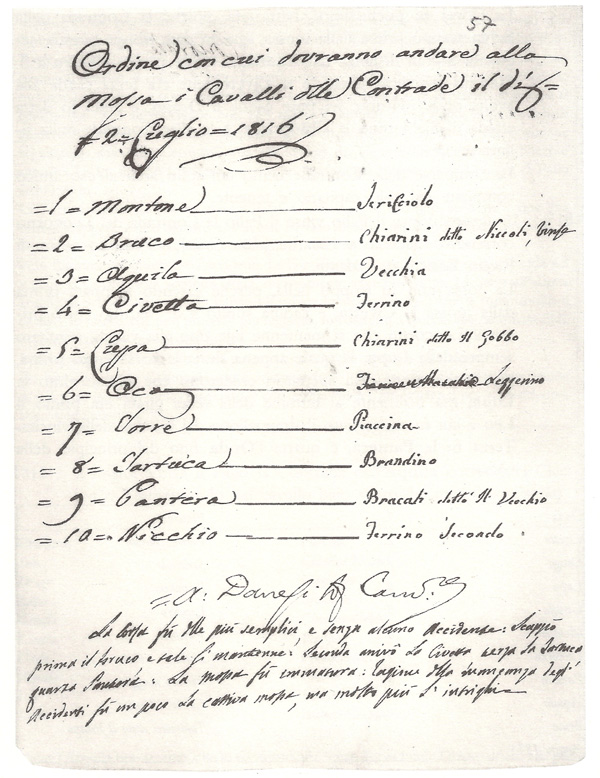 57
Ordine con cui dovranno andare alla
Mossa i Cavalli delle Contrade il dì
= 2 = Luglio = 1816
= 1 = Montone Scricciolo
= 2 = Bruco Chiarini detto Niccoli, Vinse
= 3 = Aquila Vecchia
= 4 = Civetta Ferrino
= 5 = Lupa Chiarini detto Il Gobbo
= 6 = Oca Leggerino
= 7 = Torre Piaccina
= 8 = Tartuca Brandino
= 9 = Pantera Bracali detto Il Vecchio
= 10 = Nicchio Ferrino Secondo
= A: Danesi
La Corsa fù delle più semplici, e senza alcuno Accidente: Scappò
prima il bruco e tale si mantenne: Seconda arrivò la Civetta terza la Tartuca
quarta Pantera: La Mossa fù immatura: cagione della mancanza degl'
Accidenti fù un poco la cattiva mossa, ma molto più gl'intrighi